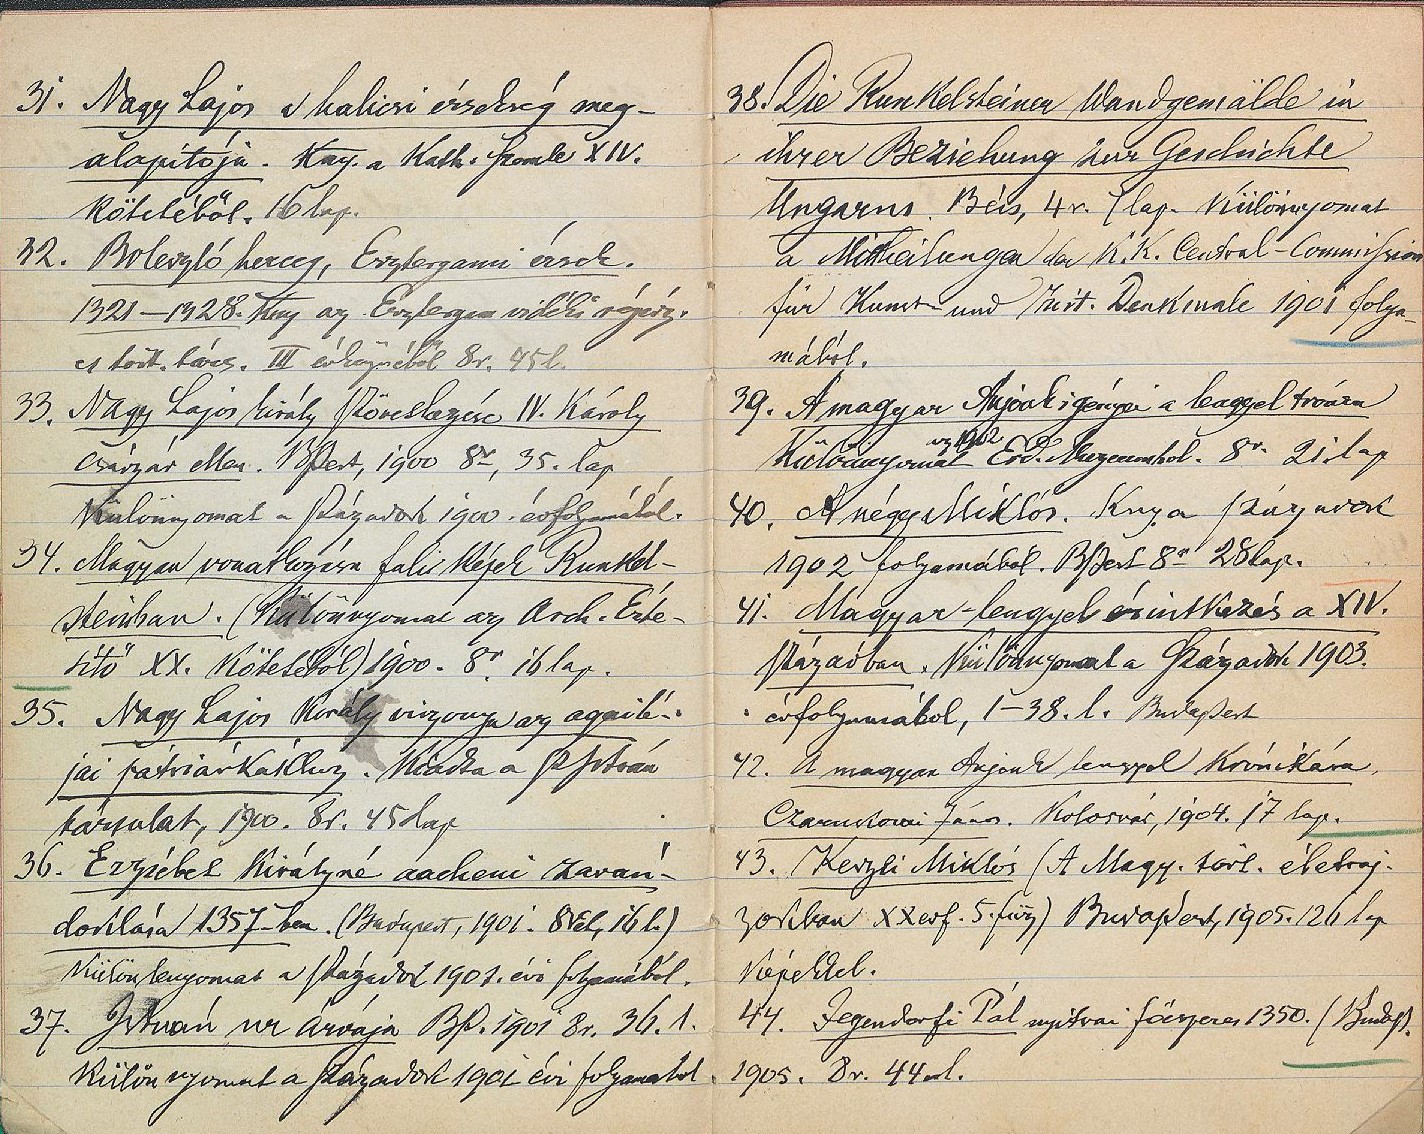 31. Nagy Lajos a halicsi érsekség meg-
alapítója. Kny. a Kath. Szemle XIV.
kötetéből. 16 lap.
32. Boleszló herceg, Esztergami érsek.
1321–1328. Kny az Esztergom vidéki régész.
és tört. társ. III évkönyvéből 8r. 45 l.
33. Nagy Lajos király szövetkezése IV. Károly
császár ellen. BPest, 1900 8r, 35. lap
Különnyomat a Századok 1900. évfolyamából.
34. Magyar vonatkozású fali képek Runkel-
steinban. (Különnyomat az Arch. Érte-
sítő XX. kötetéből) 1900. 8r. 16 lap.
35. Nagy Lajos király viszonya az aquilé-
jai pátriárkákhoz. Kiadta a Sz István
társulat, 1900. 8r. 45 lap
36. Erzsébet királyné aacheni zarán-
doklása 1357-ben. (Budapest, 1901. 8rét, 16 l.)
Különlenyomat a Századok 1901. évi folyamából.
37. István úr árvája BP. 1901 8r. 36. l.
Különnyomat a Századok 1901 évi folyamából
38. Die Runkelsteiner Wandgemälde in
ihrer Beziehung zur Geschichte
Ungarns. Bécs, 4r. lap. Különnyomat
a Mittheilungen der K.K. Central-Commission
für Kunst- und hist. Denkmale 1901 folya-
mából.
39. A magyar Anjouk igényei a lengyel trónra
Különnyomat az 1902 Erd. Muzeumbol. 8r. 21. lap
40. A négy Miklós. Kny. a Századok
1902 folyamából. BPest 8r 28 lap.
41. Magyar-lengyel érintkezés a XIV.
Században. Különnyomat a Századok 1903.
évfolyamából, 1–38. l. BudaPest
42. A magyar Anjouk lengyel krónikása,
Czarnkowi János. Kolosvár, 1904. 17 lap.
43. Keszli Miklós (A Magy. tört. életraj-
zokban XX évf. 5. füz) BudaPest, 1905. 126 lap
képekkel.
44. Jegendorfi Pál nyitrai főesperes 1350. (BudaP.
1905. 8r. 44 l.